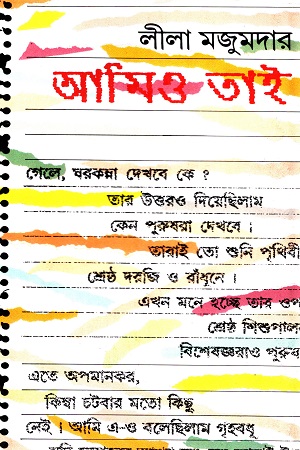 লীলা মজুমদার
আমিও তাই
গেলে, ঘরকন্না দেখবে কে ?
তার উত্তরও দিয়েছিলাম
কেন পুরুষরা দেখবে ।
তারাই তো শুনি পৃথিবী
শ্রেষ্ঠ দরজি ও রাঁধুনে ।
এখন মনে হচ্ছে তার ওপ
শ্রেষ্ঠ শিশুপাল
বিশেষজ্ঞরাও পুরুষ
এতে অপমানকর,
কিম্বা চটবার মতো কিছু
নেই । আমি এ-ও বলেছিলাম গৃহবধূ